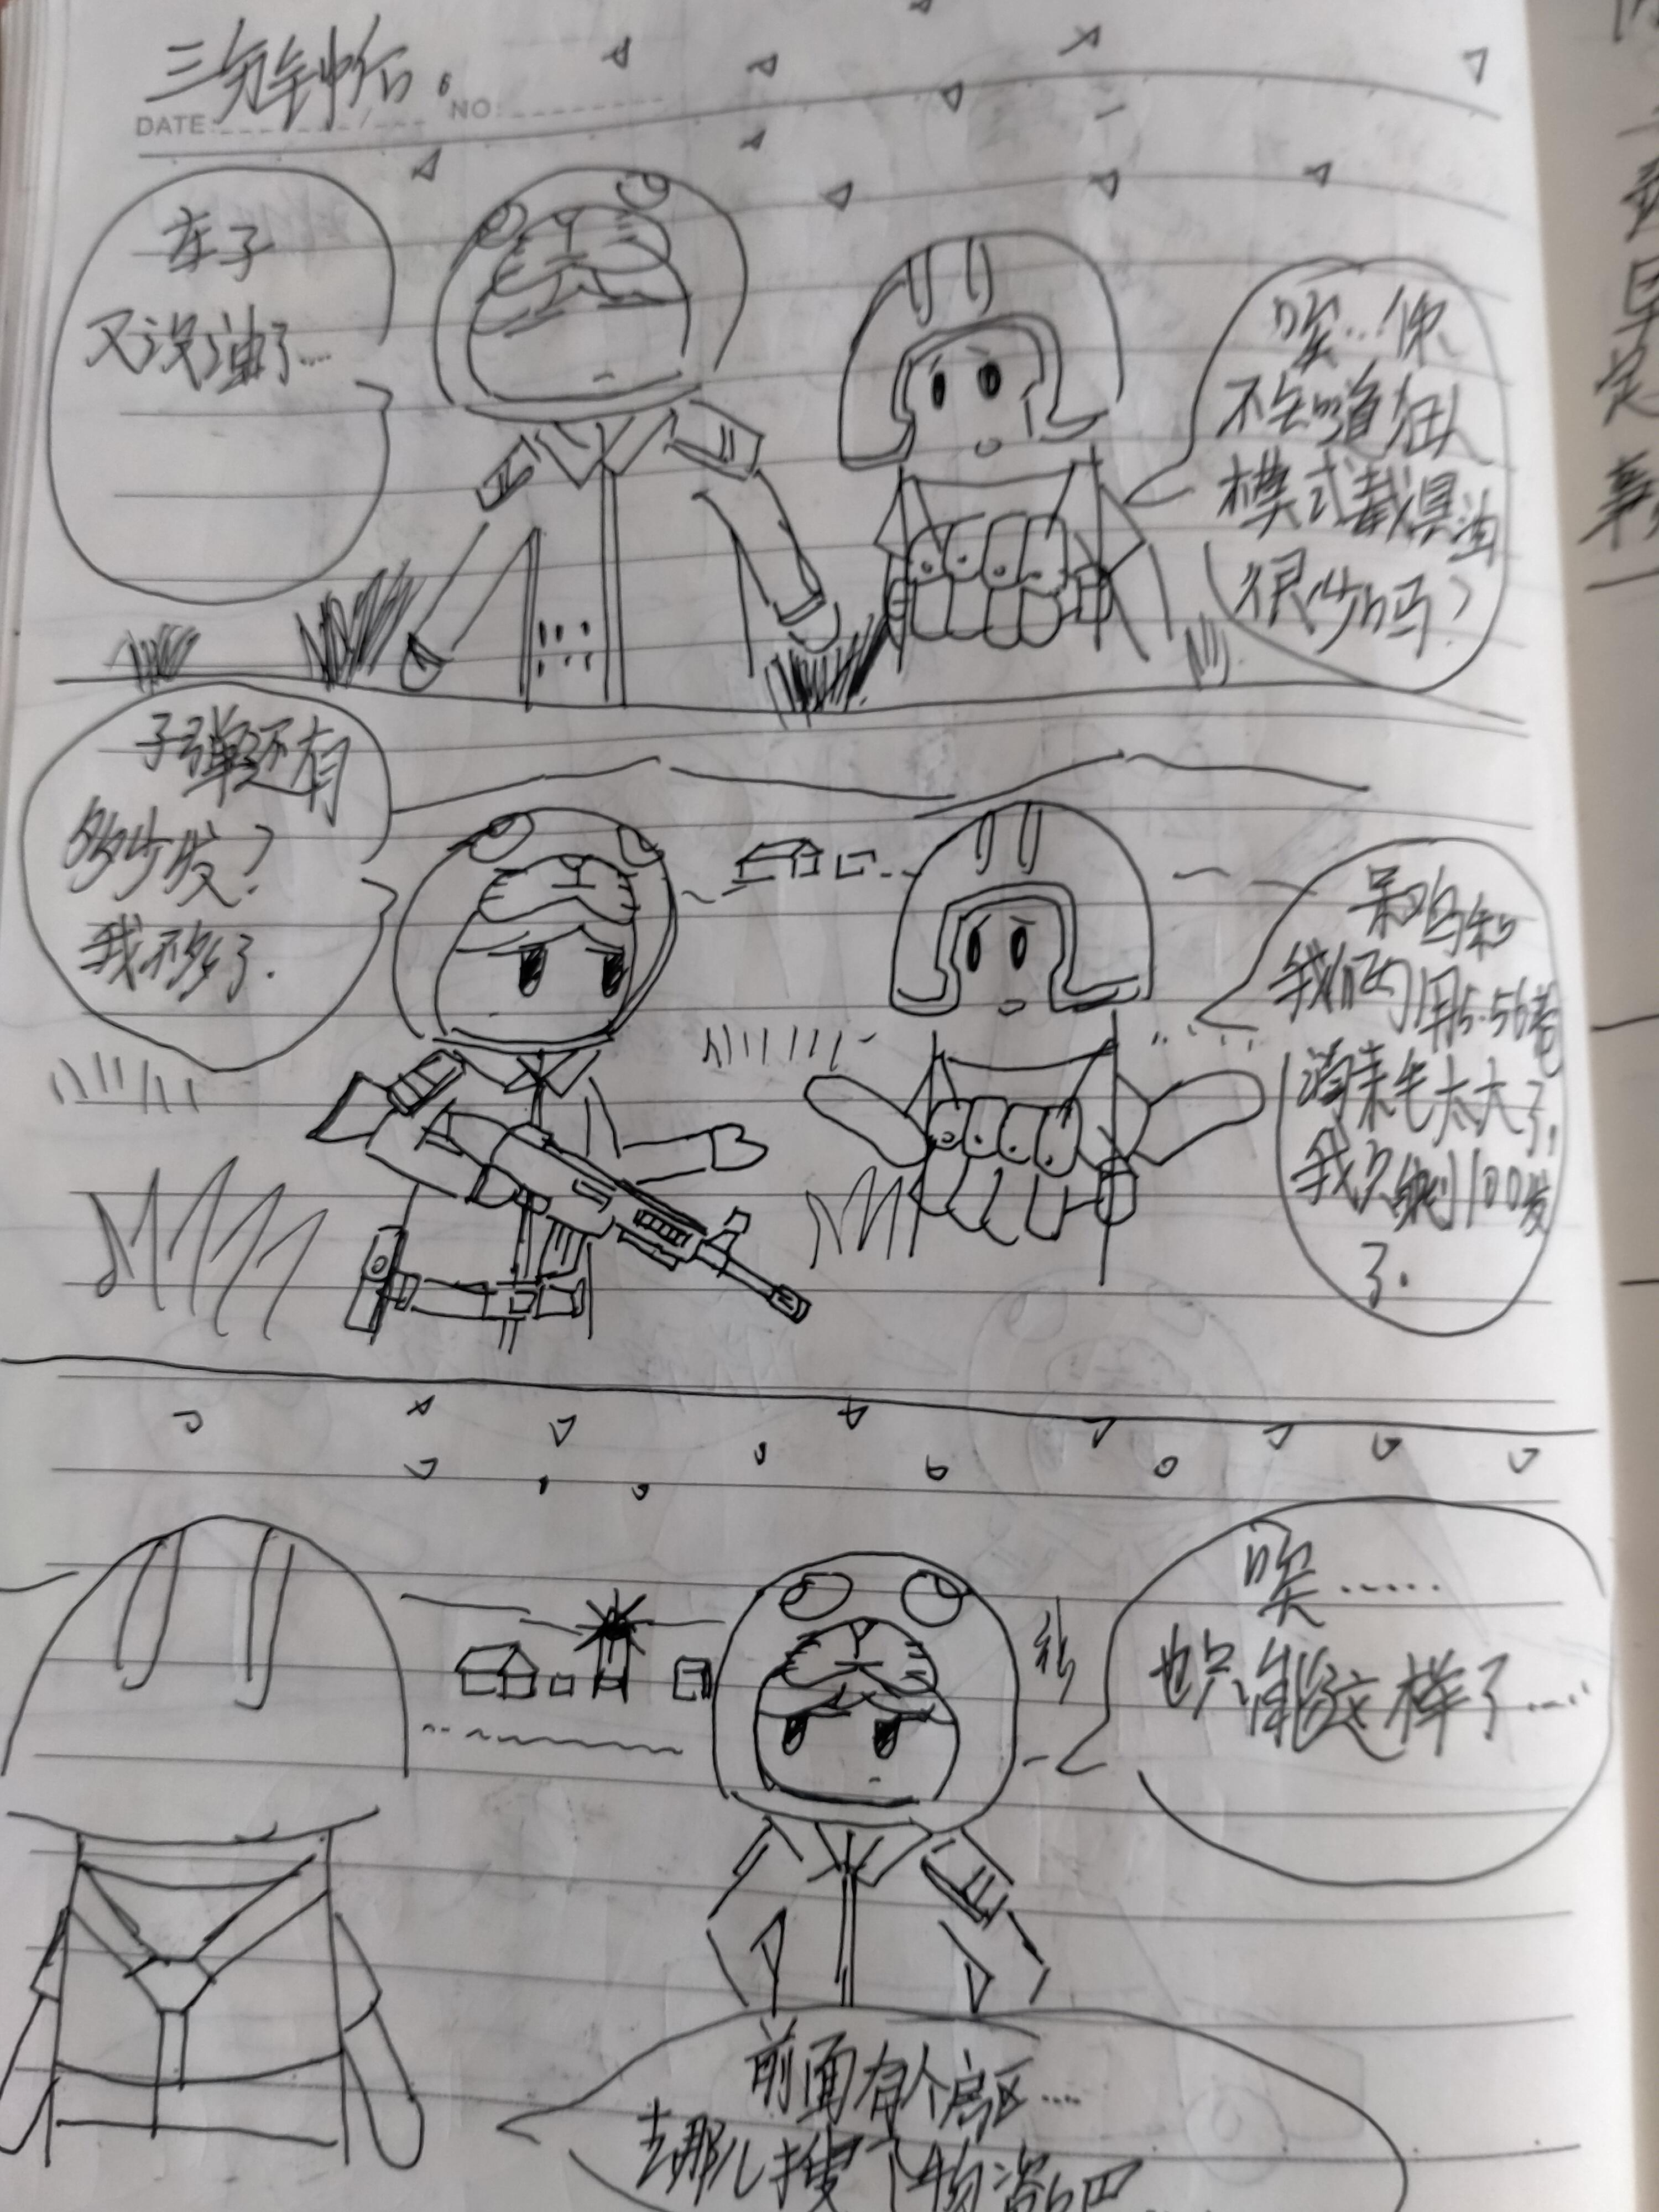 三分钟后.
DATE: NO:
车子
又没油了....
唉...你
不知道狂人
模式载具油
很少吗?
子弹还有
多少发?
我不多了.
呆鸡和
我们的用5.56卷
消耗毛太大了,
我只剩100发
了.
唉......
也只能这样了.....
前面有个房区....
去那儿搜下物资吧